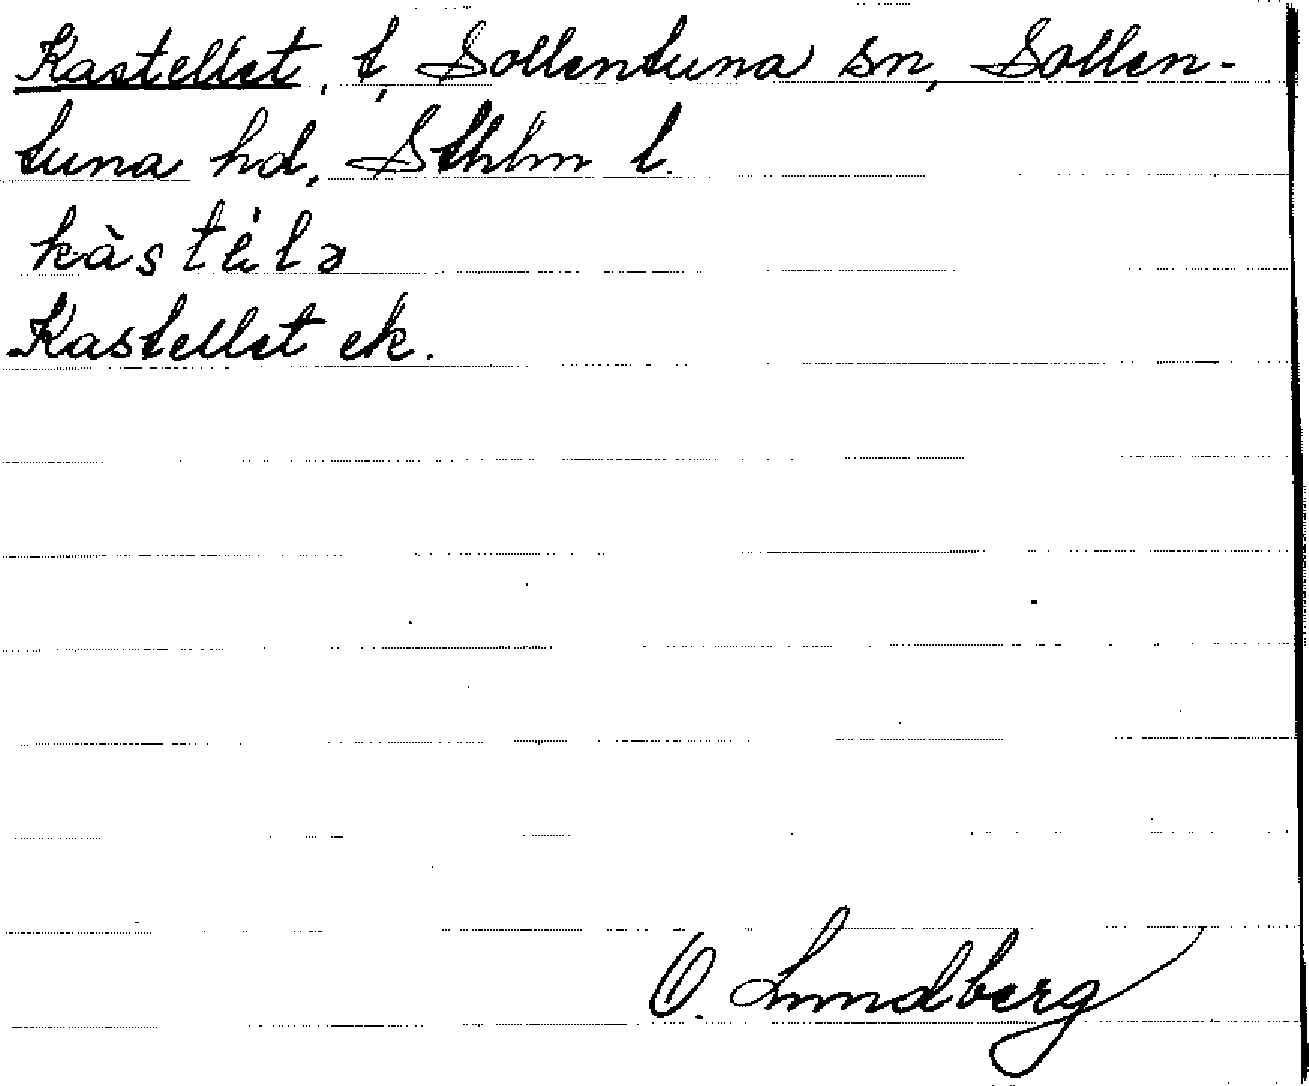 Kastellet, t, Sollentuna sn, Sollen-
tuna hd, Sthlm l.
kàstèlə
Kastellet ek.
O. Lundberg